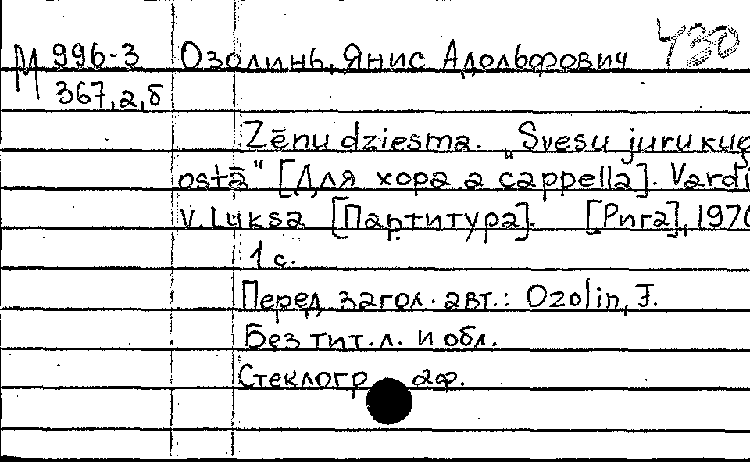 М 996-3 Озолинь, Янис Адольфович 430
367,2,б
Zēnu dziesma. „Svesu juru kug
ostā" [Для хора a cappella]. Vardi
V. Luksa [Партитура]. [Рига], 1970
1 с.
Перед загол. авт.: Ozolin, J.
Без тит. л. и обл.
Стеклогр аф.